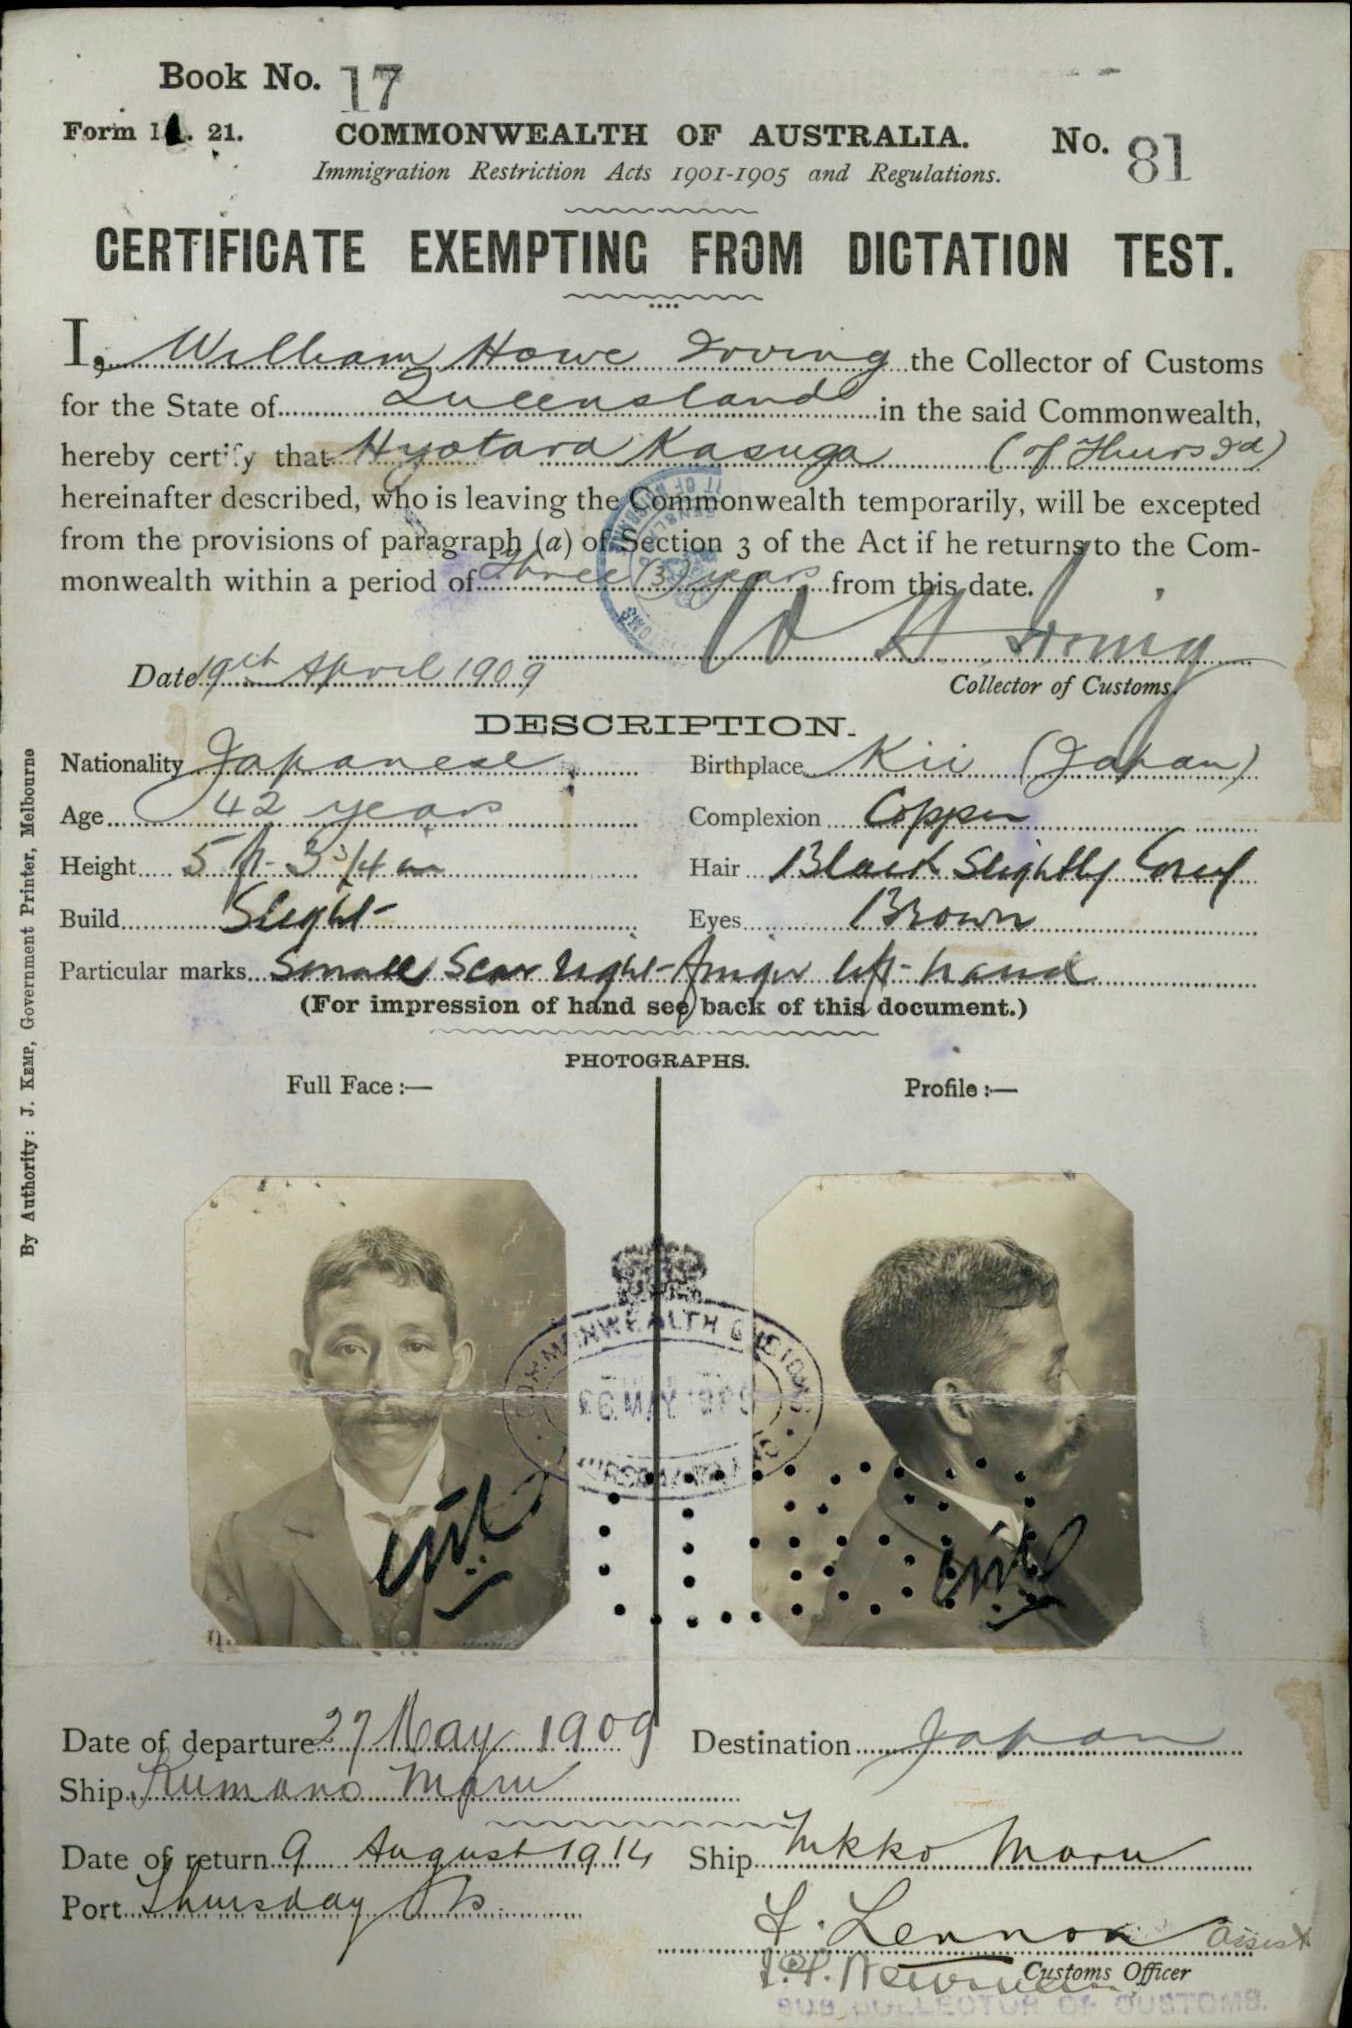 Book No. 17
Form 21.
COMMONWEALTH OF AUSTRALIA.
No. 81
Immigration Restriction Acts 1901-1905 and Regulations.
CERTIFICATE EXEMPTING FROM DICTATION TEST.
I, William Howe Irving the Collector of Customs
for the State of Queensland in the said Commonwealth,
hereby certify that Hyotara Kasuga (of Thurs Id)
hereinafter described, who is leaving the Commonwealth temporarily, will be excepted
from the provisions of paragraph (a) of Section 3 of the Act if he returns to the Com-
monwealth within a period of three (3) years from this date.
W H Irving
Date 19th April 1909
Collector of Customs.
DESCRIPTION.
Nationality Japanese Birthplace Kii (Japan)
Age 42 years Complexion Copper
Height 5 ft 3 3/4 in Hair Black Slightly Grey
Build Slight Eyes Brown
Particular marks Small Scar right finger left hand
(For impression of hand see back of this document.)
PHOTOGRAPHS.
Full Face :— Profile :—
COMMONWEALTH CUSTOMS
MAY
Date of departure 27 May 1909 Destination Japan
Ship Kumano Maru
Date of return 9 August 1914 Ship Nikko Maru
Port Thursday Is
F. Lennox Assist
Customs Officer
SUB COLLECTOR OF CUSTOMS.
By Authority: J. KEMP, Government Printer, Melbourne